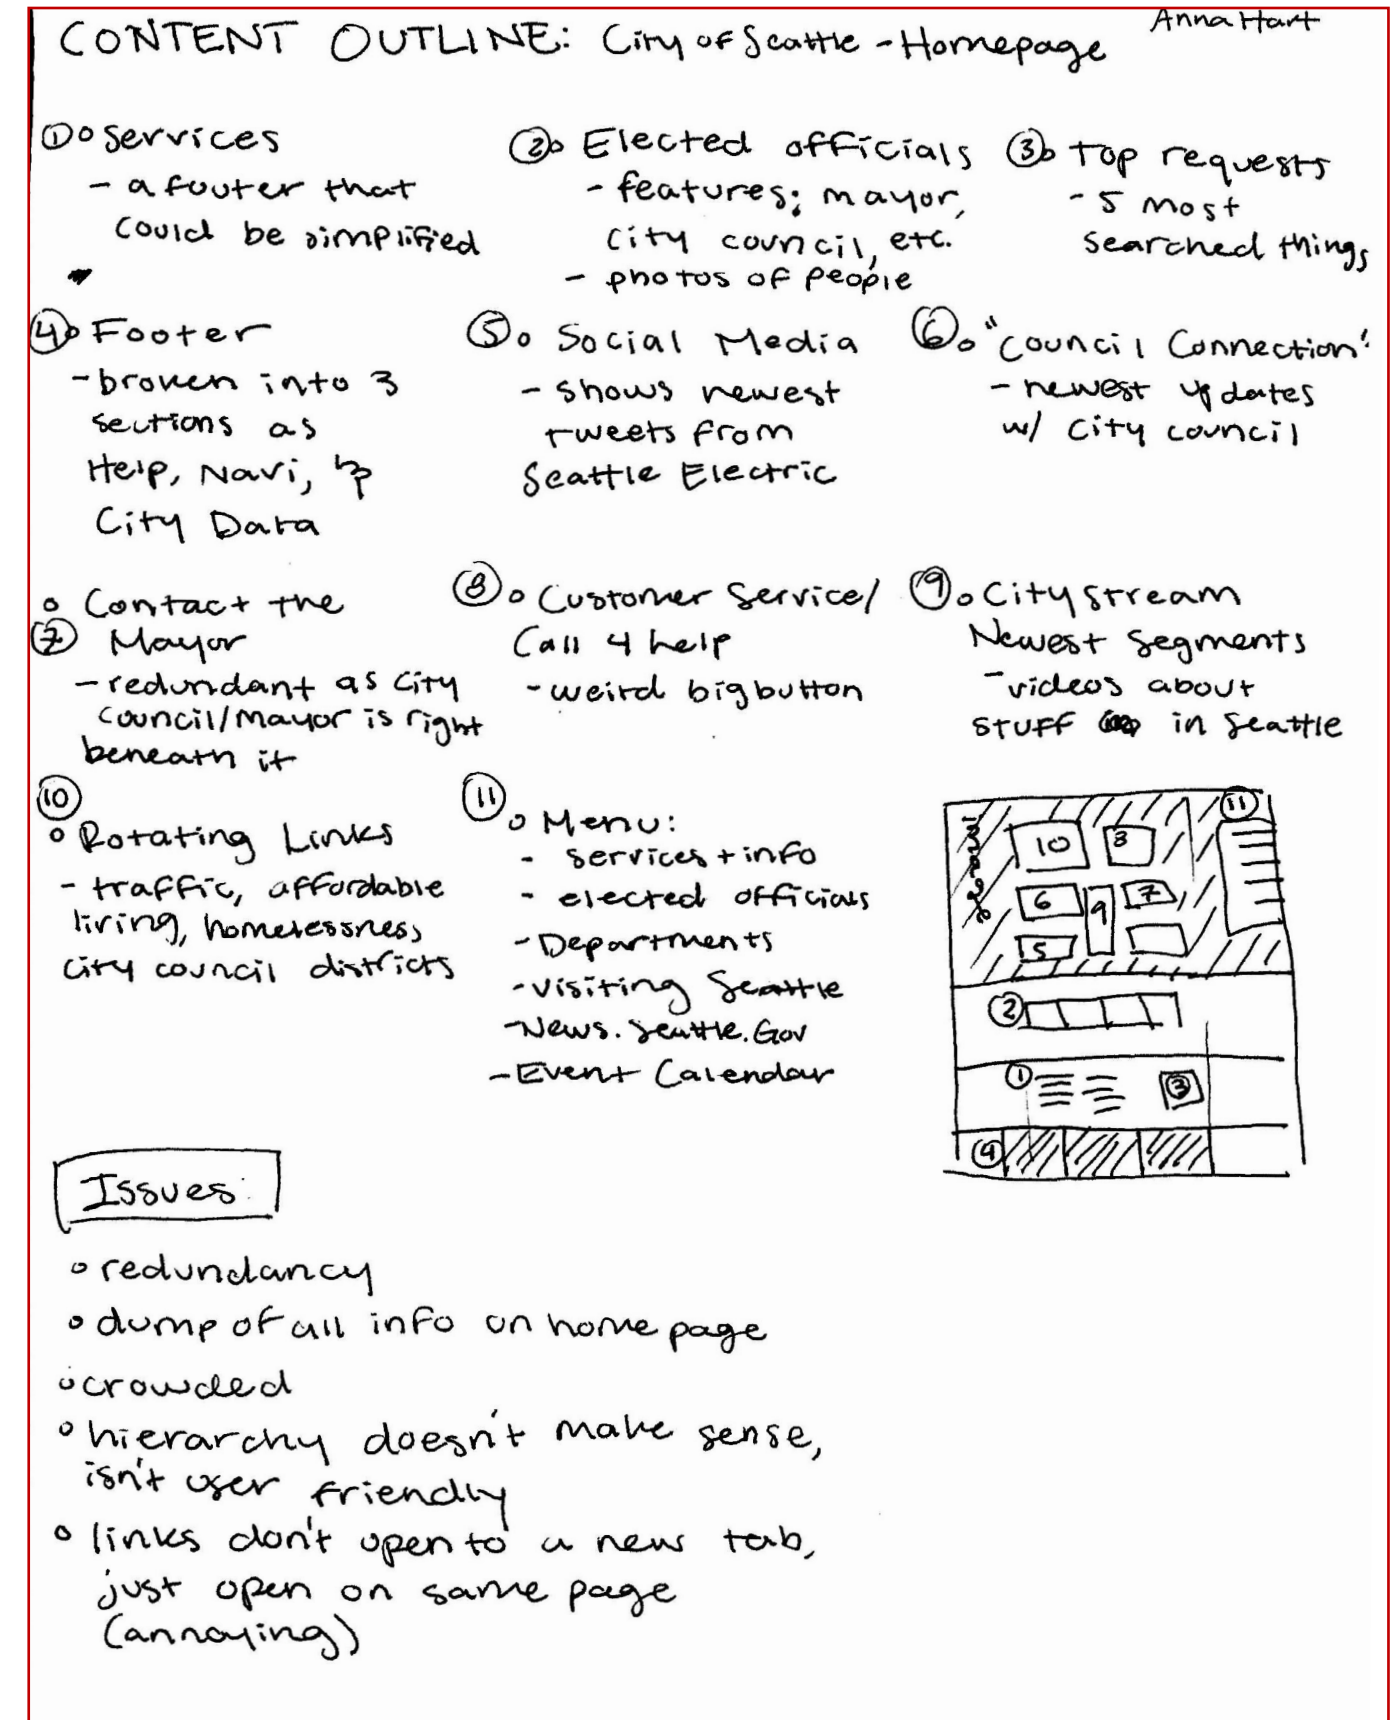 Anna Hart
CONTENT OUTLINE: City of Seattle - Homepage
① o Services
- a footer that
could be simplified
② o Elected officials
- features; mayor,
city council, etc.
- photos of people
③ o Top requests
- 5 most
searched things
④ o Footer
- broken into 3
sections as
Help, Navi, &
City Data
⑤ o Social Media
- shows newest
tweets from
Seattle Electric
⑥ o "Council Connection"
- newest updates
w/ city council
o Contact the
⑦ Mayor
- redundant as city
council/mayor is right
beneath it
⑧ o Customer Service/
Call 4 help
- weird big button
⑨ o City Stream
Newest Segments
- videos about
stuff in Seattle
⑩
o Rotating Links
- traffic, affordable
living, homelessness
city council districts
⑪ o Menu:
- services + info
- elected officials
- Departments
- visiting Seattle
- News.Seattle.Gov
- Event Calendar
⑪
10 8
6 9 7
5
②
① ③
④
Issues:
o redundancy
o dump of all info on home page
o crowded
o hierarchy doesn't make sense,
isn't user friendly
o links don't open to a new tab,
just open on same page
(annoying)